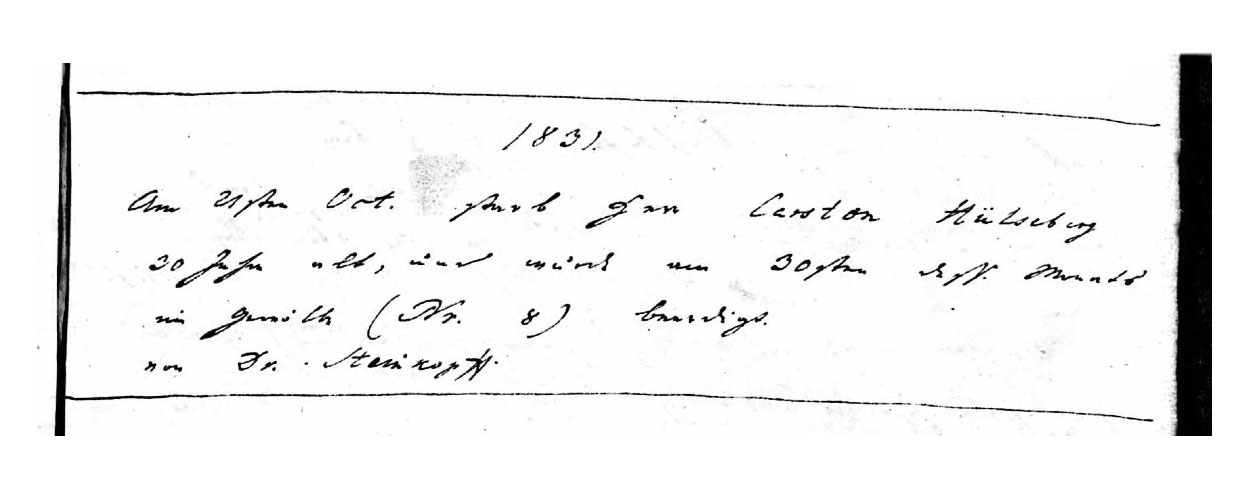 1831.
Am 21sten Oct. starb Herr Carsten Hülseberg
30 Jahr alt, und wurde am 30sten dess. Monats
im Gewölbe (Nr. 8) beerdigt.
von Dr. Steinkopff.